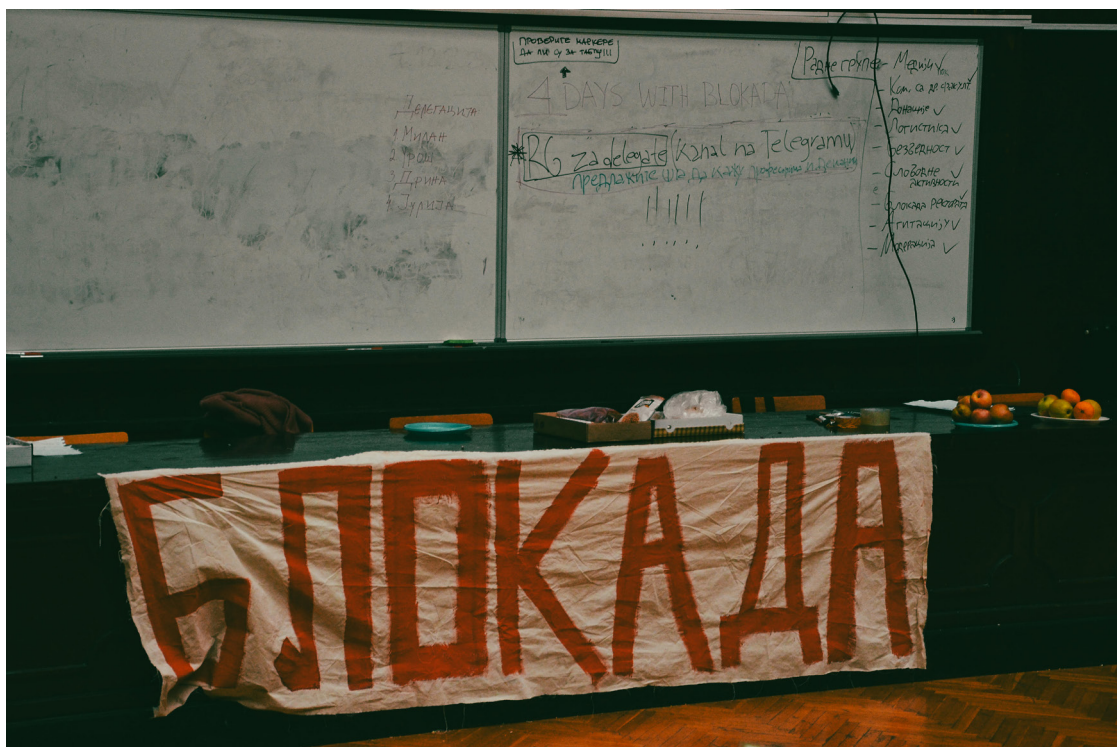 Делегација
1. Милан
2. Урош
3. Дуриna
4. Јулија
ПРОВЕРИТЕ МАРКЕРЕ
ДА ЛИ СУ ЗА ТАБЛУ!!!
4 DAYS WITH BLOKADA
RG za delegate (Kanal na Telegramu)
предложите шта да кажу професорима и деканици
Радне групе
- Медији ✓
- Донације ✓
- Логистика ✓
- Безбедност ✓
- Словодне
активности
- Блокада Ректората
- Агитација ✓
- Модерација ✓
БЛОКАДА